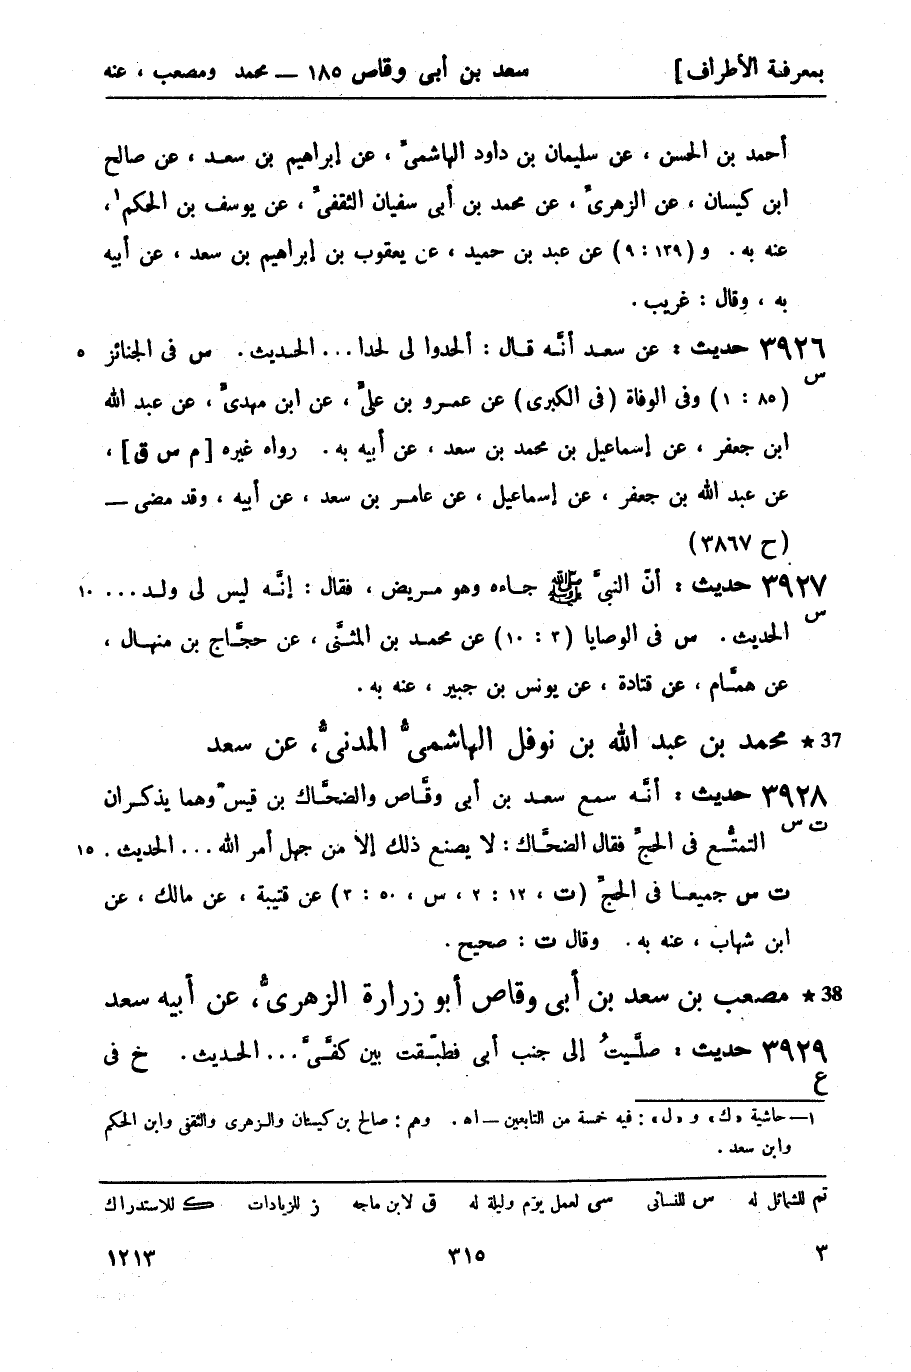 بمعرفة الأطراف] سعد بن أبى وقاص ١٨٥ — محمد ومصعب ، عنه
أحمد بن الحسن ، عن سليمان بن داود الهاشمىّ ، عن إبراهيم بن سعد ، عن صالح
ابن كيسان ، عن الزهرىّ ، عن محمد بن أبى سفيان الثقفىّ ، عن يوسف بن الحكم¹ ،
عنه به . و (١٣٩ : ٩) عن عبد بن حميد ، عن يعقوب بن إبراهيم بن سعد ، عن أبيه
به ، وقال : غريب .
٣٩٢٦ حديث : عن سعد أنَّه قال : ألحدوا لى لحدا ... الحديث . س فى الجنائز ٥
س
(٨٥ : ١) وفى الوفاة (فى الكبرى) عن عمرو بن علىّ ، عن ابن مهدىّ ، عن عبد الله
ابن جعفر ، عن إسماعيل بن محمد بن سعد ، عن أبيه به . رواه غيره [م س ق] ،
عن عبد الله بن جعفر ، عن إسماعيل ، عن عامر بن سعد ، عن أبيه ، وقد مضى —
(ح ٣٨٦٧)
٣٩٢٧ حديث : أنّ النبىَّ ﷺ جاءه وهو مريض ، فقال : إنَّه ليس لى ولد ... ١٠
س
الحديث . س فى الوصايا (٣ : ١٠) عن محمد بن المثنَّى ، عن حجَّاج بن منهال ،
عن همَّام ، عن قتادة ، عن يونس بن جبير ، عنه به .
37 ★ محمد بن عبد الله بن نوفل الهاشمىُّ المدنىُّ ، عن سعد
٣٩٢٨ حديث : أنَّه سمع سعد بن أبى وقَّاص والضحَّاك بن قيس وهما يذكران
ت س
التمتُّع فى الحجّ فقال الضحَّاك : لا يصنع ذلك إلا من جهل أمر الله ... الحديث . ١٥
ت س جميعا فى الحجّ (ت ، ١٢ : ٢ ، س ، ٥٠ : ٣) عن قتيبة ، عن مالك ، عن
ابن شهاب ، عنه به . وقال ت : صحيح .
38 ★ مصعب بن سعد بن أبى وقاص أبو زرارة الزهرىُّ ، عن أبيه سعد
٣٩٢٩ حديث : صلَّيتُ إلى جنب أبى فطبّقت بين كفَّىَّ ... الحديث . خ فى
ع
١— حاشية «ك» و «ل» : فيه خمسة من التابعين — اه . وهم : صالح بن كيسان والزهرى والثقفى وابن الحكم
وابن سعد .
تم للشمائل له س للنسائى سى لعمل يوم وليلة له ق لابن ماجه ز للزيادات ك للاستدراك
٣ ٣١٥ ١٢١٣